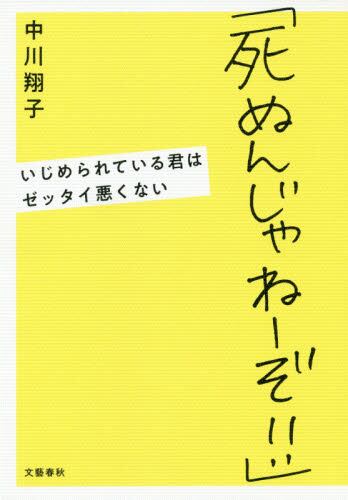 「死ぬんじゃねーぞ!!」
中川翔子
いじめられている君は
ゼッタイ悪くない
文藝春秋